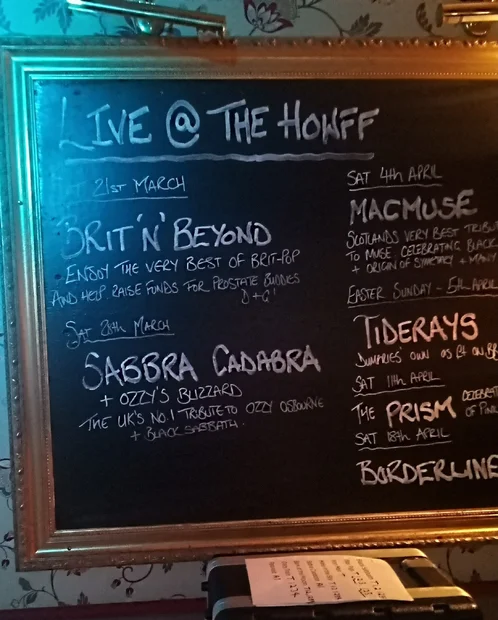 LIVE @ THE HOWFF
SAT 21ST MARCH
BRIT 'N' BEYOND
ENJOY THE VERY BEST OF BRIT-POP
AND HELP RAISE FUNDS FOR PROSTATE BUDDIES
D+G!
SAT 28th MARCH
SABBRA CADABRA
+ OZZY'S BLIZZARD
THE UK'S NO.1 TRIBUTE TO OZZY OSBOURNE
+ BLACK SABBATH.
SAT 4th APRIL
MACMUSE
SCOTLANDS VERY BEST TRIBU
TO MUSE CELEBRATING BLACK
+ ORIGIN OF SYMETRY + MANY
EASTER SUNDAY - 5th APRIL
TIDERAYS
DUMFRIES OWN AS ON
SAT 11th APRIL
THE PRISM CELEBRAT
OF PINK
SAT 18th APRIL
BORDERLINE